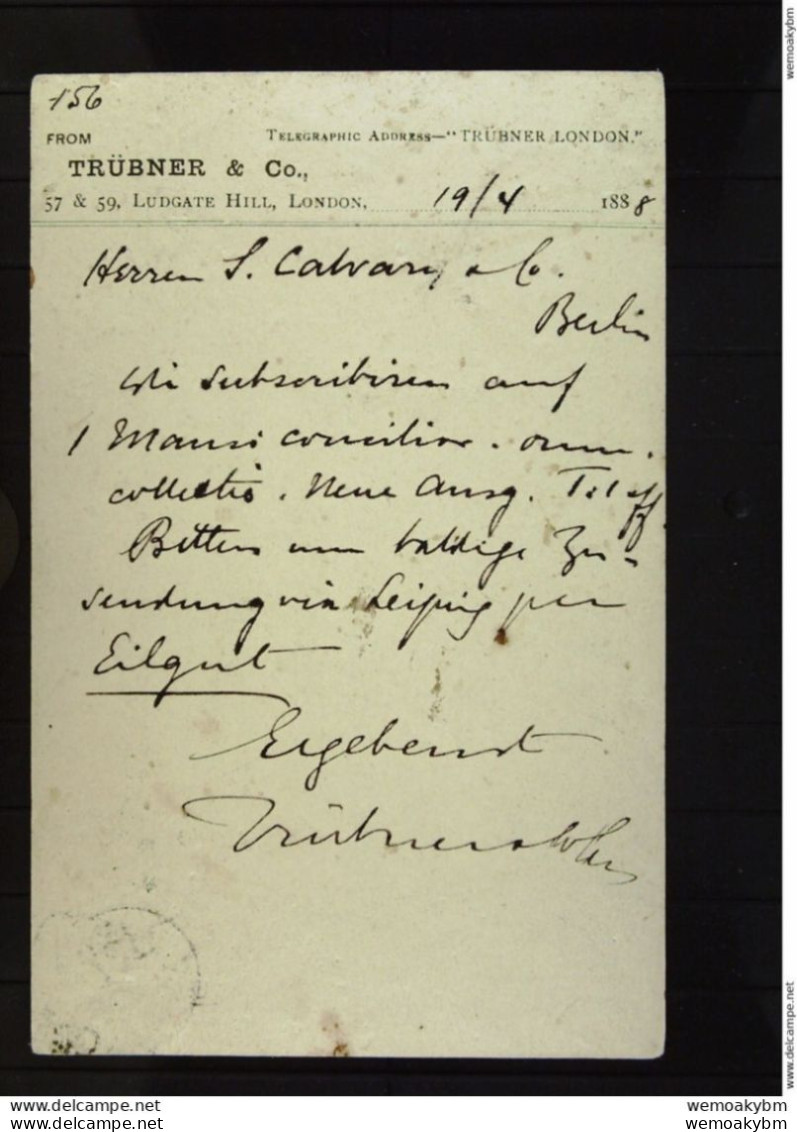 156
FROM TELEGRAPHIC ADDRESS—"TRÜBNER LONDON."
TRÜBNER & Co.,
57 & 59, LUDGATE HILL, LONDON, 19/4 1888
Herren S. Calvary & Co.
Berlin
Wir subscribiren auf
1 Mansi concilior. omn.
collectio. Neue Ausg. T. 1 ff
Bitten um baldige Zu-
sendung via Leipzig per
Eilgut
Ergebenst
Trübner & Co
wemoakybm
www.delcampe.net
www.delcampe.net wemoakybm
www.delcampe.net wemoakybm